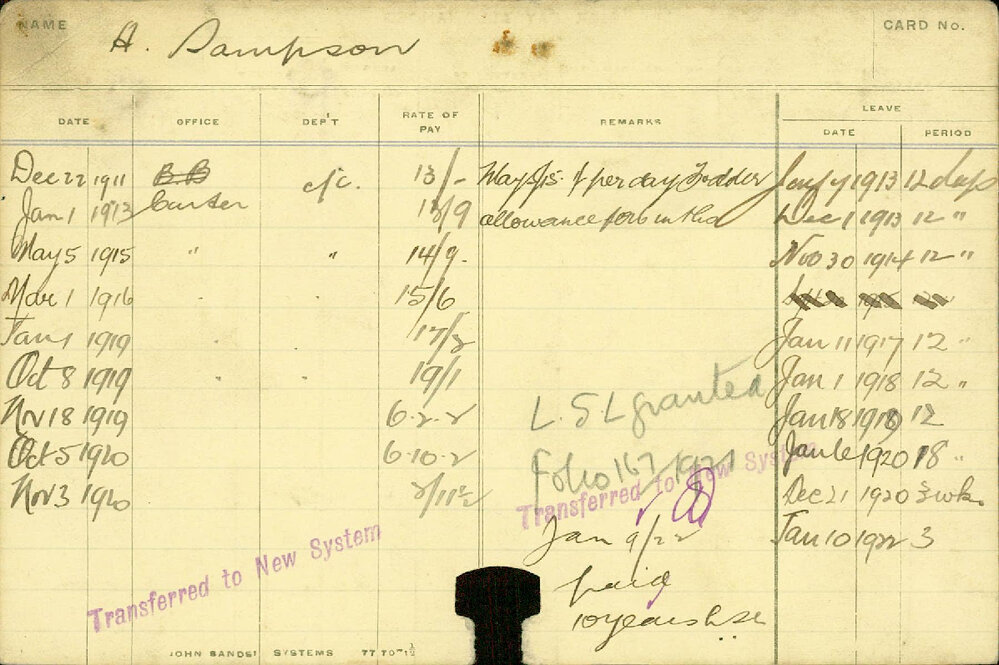 NAME H. Sampson CARD No.
DATE OFFICE DEP'T RATE OF PAY REMARKS LEAVE
DATE PERIOD
Dec 22 1911 B.B c/c. 13/- May 5/15 per day Fodder Jany 1913 12 days
Jan 1 1913 Carter 13/9 allowance for 6 mths Dec 1 1913 12 "
May 5 1915 " " 14/9. Nov 30 1914 12 "
Mar 1 1916 15/6
Jan 1 1919 17/3 Jan 11 1917 12 "
Oct 8 1919 19/1 Jan 1 1918 12 "
Nov 18 1919 6-2-2 L.S.L granted Jan 18 1919 12
Oct 5 1920 6-10-2 Folio 167/1921 Jan 6 1920 18 "
Nov 3 1920 /11½ Transferred to New System Dec 21 1920 3 wks
Jan 9/22 Jan 10 1922 3
Transferred to New System
paid
10 years
JOHN SANDS SYSTEMS